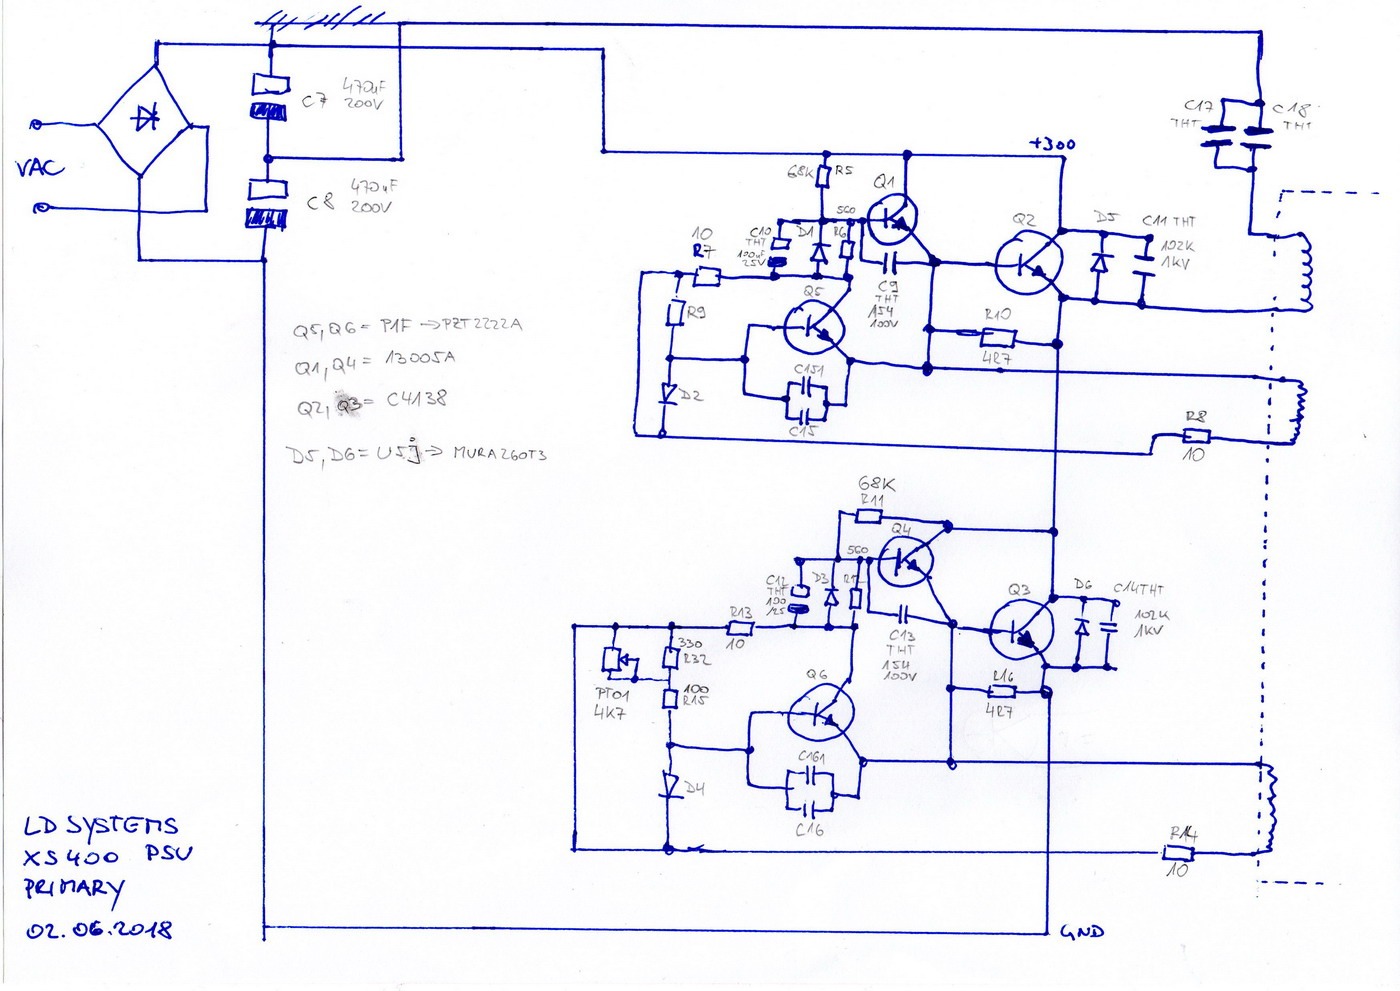 C7 470uF
200V
VAC
C8 470uF
200V
+300
C17
THT
C18
THT
68K R5
Q1
560
R6
C10
THT
100uF
25V
D1
10
R7
C9
THT
154
100V
Q2
D5
C11 THT
102K
1KV
Q5
R9
R10
4R7
D2
C151
C15
R8
10
Q5, Q6 = P1F → PZT2222A
Q1, Q4 = 13005A
Q2, Q3 = C4138
D5, D6 = U5j → MURA260T3
68K
R11
Q4
560
C12
THT
100
/25
D3
C13
THT
154
100V
Q3
D6
C14 THT
102K
1KV
R13
10
330
R32
100
R15
PT01
4K7
Q6
R16
4R7
D4
C161
C16
R14
10
LD SYSTEMS
XS400 PSU
PRIMARY
02.06.2018
GND